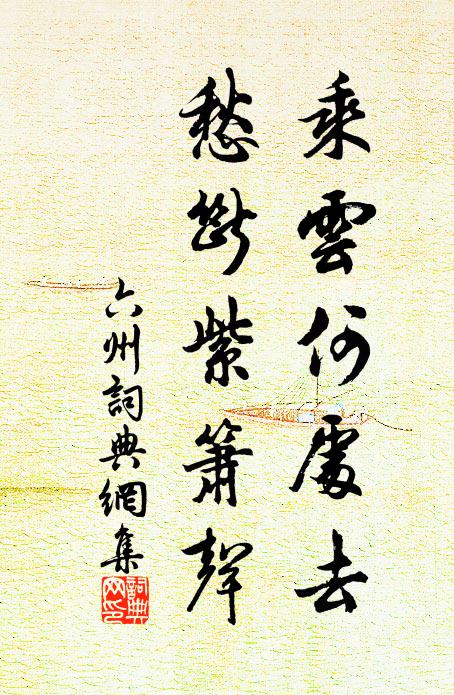 乘雲何處去
愁斷紫簫聲
六州詞典網集
詞典
网印